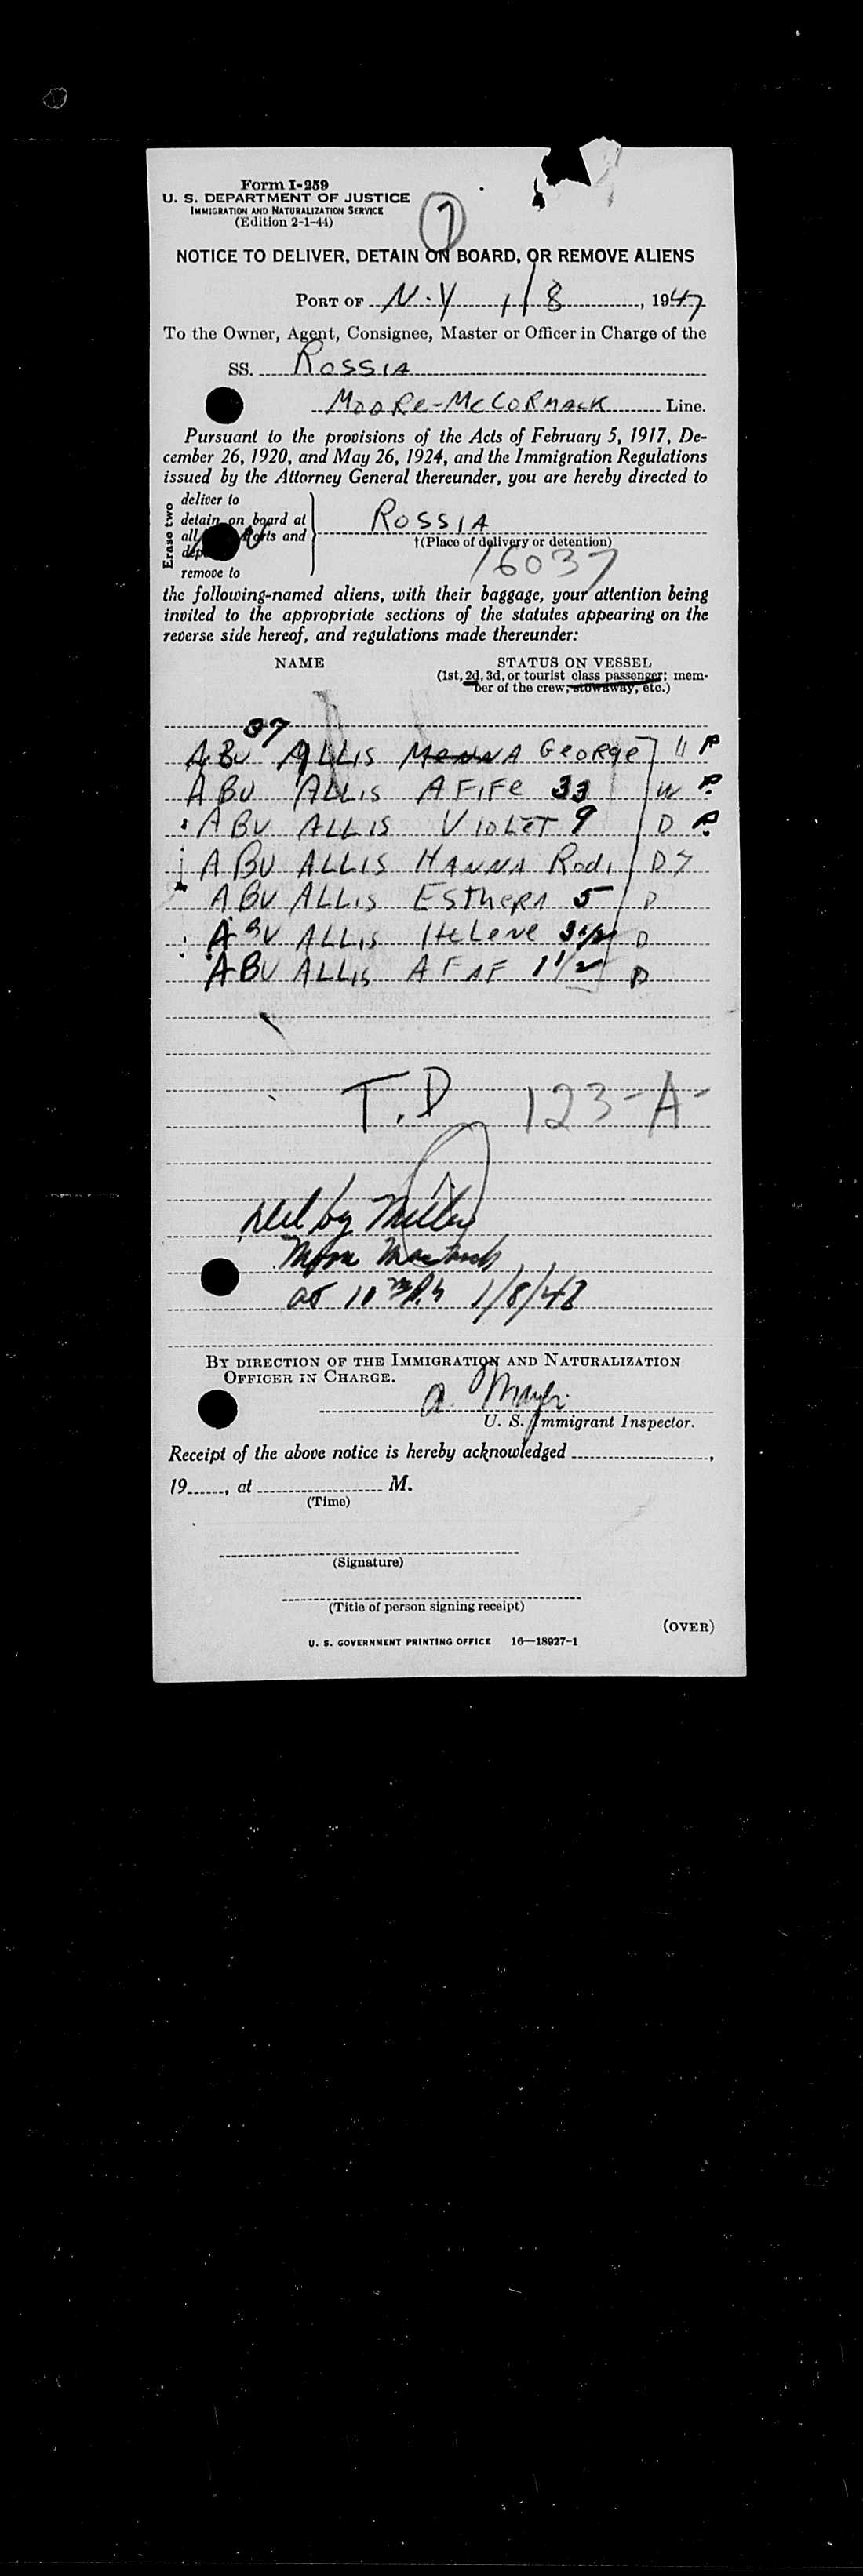 Form I-259
U. S. DEPARTMENT OF JUSTICE
IMMIGRATION AND NATURALIZATION SERVICE
(Edition 2-1-44)
7
NOTICE TO DELIVER, DETAIN ON BOARD, OR REMOVE ALIENS
PORT OF N.Y 1/8, 1947
To the Owner, Agent, Consignee, Master or Officer in Charge of the
SS. ROSSIA
MOORE-MCCORMACK Line.
Pursuant to the provisions of the Acts of February 5, 1917, De-
cember 26, 1920, and May 26, 1924, and the Immigration Regulations
issued by the Attorney General thereunder, you are hereby directed to
Erase two
deliver to
detain on board at
all ports and
remove to
ROSSIA
†(Place of delivery or detention)
16037
the following-named aliens, with their baggage, your attention being
invited to the appropriate sections of the statutes appearing on the
reverse side hereof, and regulations made thereunder:
NAME STATUS ON VESSEL
(1st, 2d, 3d, or tourist class passenger; mem-
ber of the crew, stowaway, etc.)
37
ABU ALLIS GEORGE
ABU ALLIS AFIFE 33 W P.
ABU ALLIS VIOLET 9 D P.
ABU ALLIS HANNA Rodi D 7
ABU ALLIS ESTHERA 5 D
ABU ALLIS HELENE 3 1/2 D
ABU ALLIS AFAF 1 1/2 D
T.D 123-A-
Del by Miller
1/8/48
BY DIRECTION OF THE IMMIGRATION AND NATURALIZATION
OFFICER IN CHARGE.
U. S. Immigrant Inspector.
Receipt of the above notice is hereby acknowledged ,
19 , at M.
(Time)
(Signature)
(Title of person signing receipt)
(OVER)
U. S. GOVERNMENT PRINTING OFFICE 16—18927-1